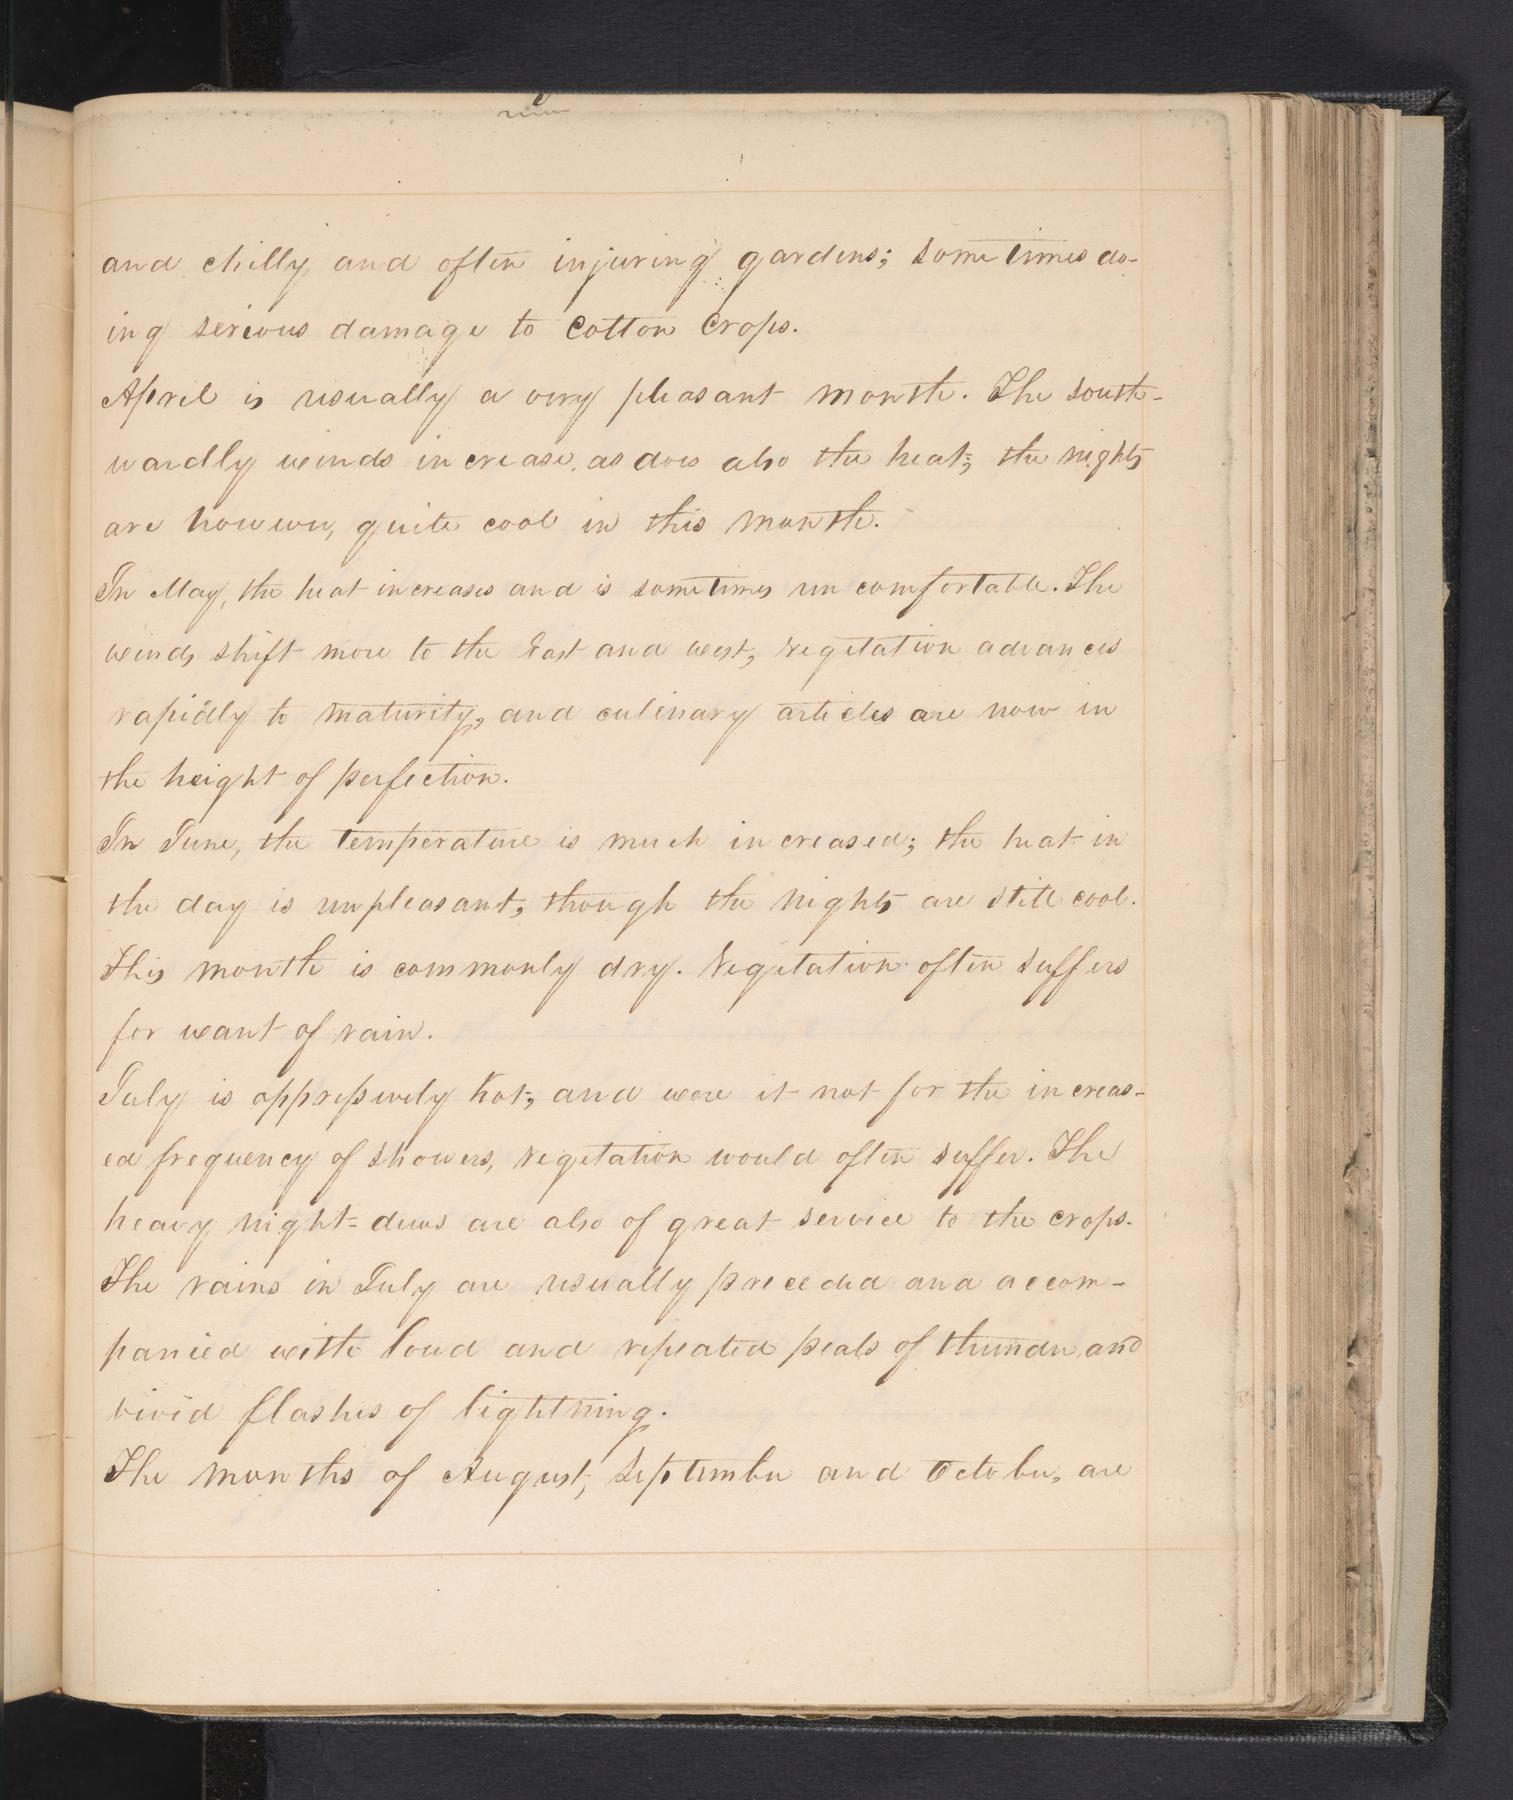 and chilly and often injuring gardens; sometimes do-
ing serious damage to Cotton Crops.
April is usually a very pleasant month. The south-
wardly winds increase, as does also the heat; the nights
are however, quite cool in this month.
In May, the heat increases and is sometimes uncomfortable. The
winds shift more to the East and west, Vegetation advances
rapidly to maturity, and culinary articles are now in
the height of perfection.
In June, the temperature is much increased; the heat in
the day is unpleasant, though the nights are still cool.
This month is commonly dry. Vegetation often suffers
for want of rain.
July is oppressively hot, and were it not for the increas-
ed frequency of showers, Vegetation would often suffer. The
heavy night-dews are also of great service to the crops.
The rains in July are usually preceded and accom-
panied with loud and repeated peals of thunder, and
vivid flashes of lightning.
The months of August, September and October, are